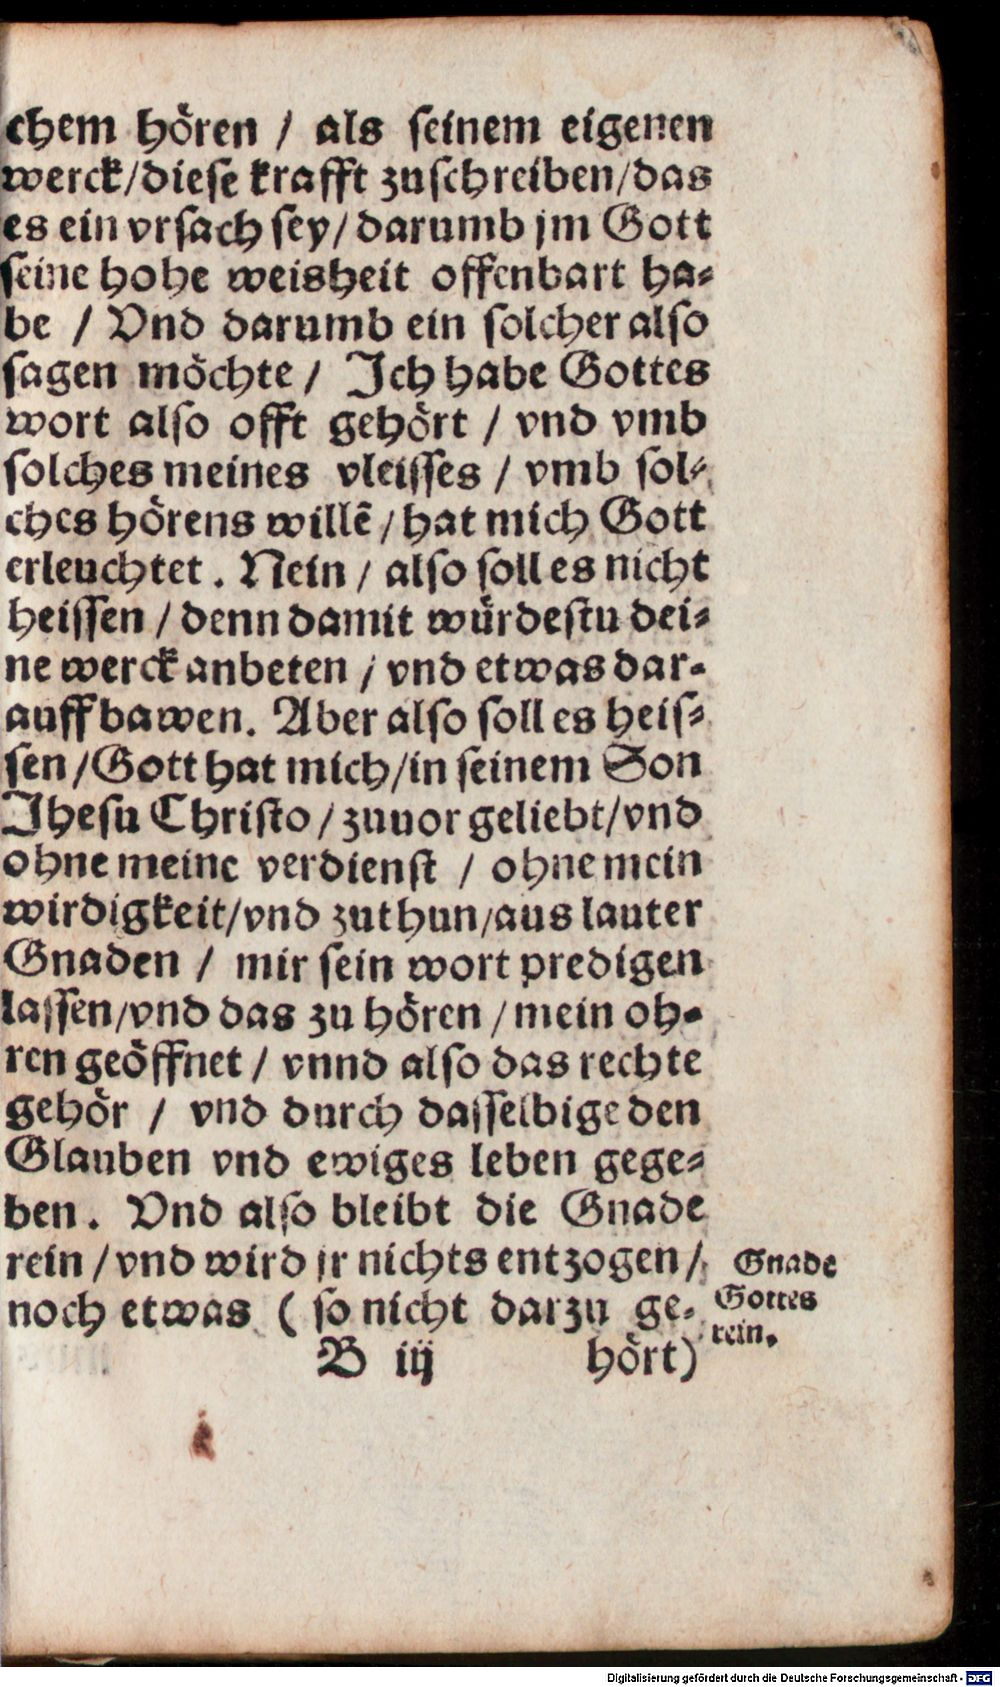 chem hören / als seinem eigenen
werck/diese krafft zuschreiben/das
es ein vrsach sey/ darumb jm Gott
seine hohe weisheit offenbart ha⸗
be / Vnd darumb ein solcher also
sagen möchte / Ich habe Gottes
wort also offt gehört / vnd vmb
solches meines vleisses / vmb sol⸗
ches hörens willẽ / hat mich Gott
erleuchtet. Nein / also soll es nicht
heissen / denn damit würdestu dei⸗
ne werck anbeten / vnd etwas dar⸗
auff bawen. Aber also soll es heis⸗
sen /Gott hat mich/in seinem Son
Ihesu Christo / zuuor geliebt/vnd
ohne meine verdienst / ohne mein
wirdigkeit/vnd zuthun/aus lauter
Gnaden / mir sein wort predigen
lassen/vnd das zu hören / mein oh⸗
ren geöffnet / vnnd also das rechte
gehör / vnd durch dasselbige den
Glauben vnd ewiges leben gege⸗
ben. Vnd also bleibt die Gnade
rein / vnd wird jr nichts entzogen /
noch etwas ( so nicht darzu ge⸗
Gnade
Gottes
rein.
B iij hört)
Digitalisierung gefördert durch die Deutsche Forschungsgemeinschaft - DFG